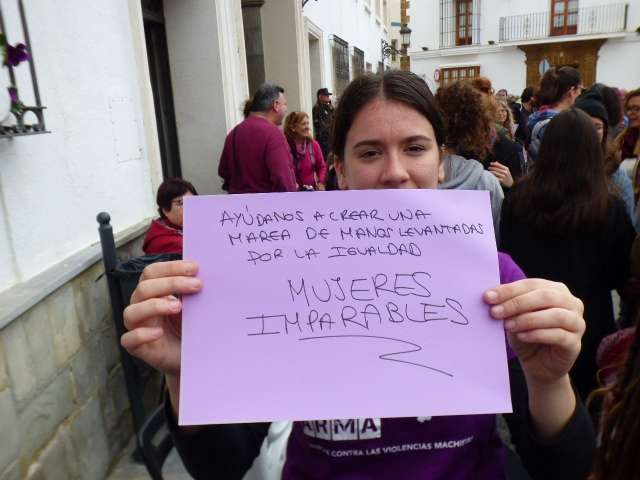 AYÚDANOS A CREAR UNA
MAREA DE MANOS LEVANTADAS
POR LA IGUALDAD
MUJERES
IMPARABLES
ARMA
CONTRA LAS VIOLENCIAS